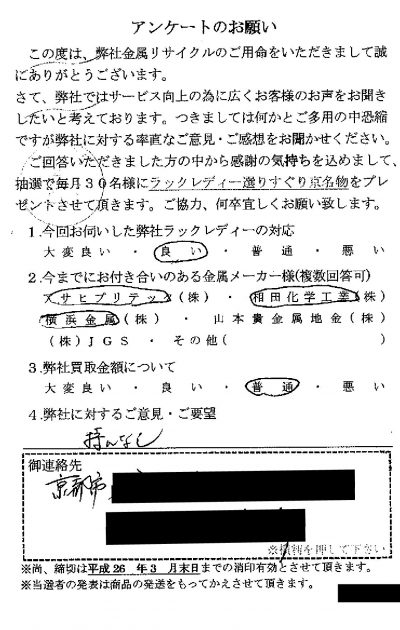 アンケートのお願い
この度は、弊社金属リサイクルのご用命をいただきまして誠
にありがとうございます。
さて、弊社ではサービス向上の為に広くお客様のお声をお聞き
したいと考えております。つきましては何かとご多用の中恐縮
ですが弊社に対する率直なご意見・ご感想をお聞かせください。
ご回答いただきました方の中から感謝の気持ちを込めまして、
抽選で毎月30名様にラックレディー選りすぐり京名物をプレ
ゼントさせて頂きます。ご協力、何卒宜しくお願い致します。
1.今回お伺いした弊社ラックレディーの対応
大変良い・良い・普通・悪い
2.今までにお付き合いのある金属メーカー様(複数回答可)
アサヒプリテック(株)・相田化学工業(株)
横浜金属(株)・山本貴金属地金(株)
(株)JGS・その他( )
3.弊社買取金額について
大変良い・良い・普通・悪い
4.弊社に対するご意見・ご要望
特になし
御連絡先
京都市
を押して下さい
※尚、締切は平成26年3月末日までの消印有効とさせて頂きます。
※当選者の発表は商品の発送をもってかえさせて頂きます。